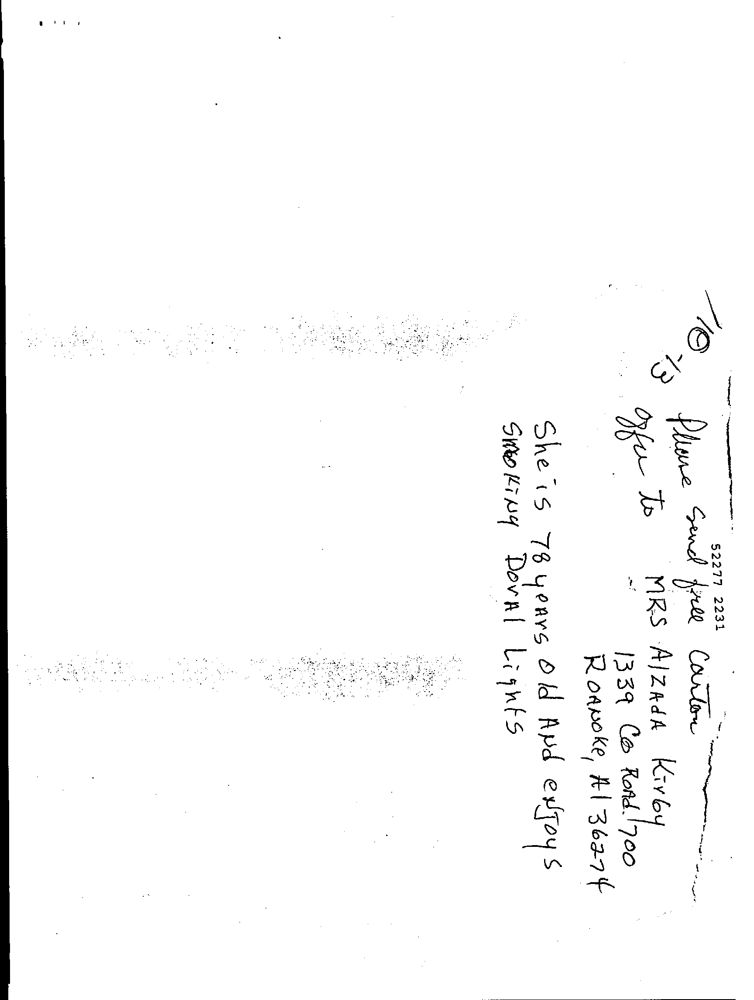 52277 2231
Please send free Carton
offer to MRS AlzAdA Kirby
1339 Co Road 1700
ROANOKE, Al 36274
She is 78 years old ANd eNJoys
SmoKiNg DorAl Lights